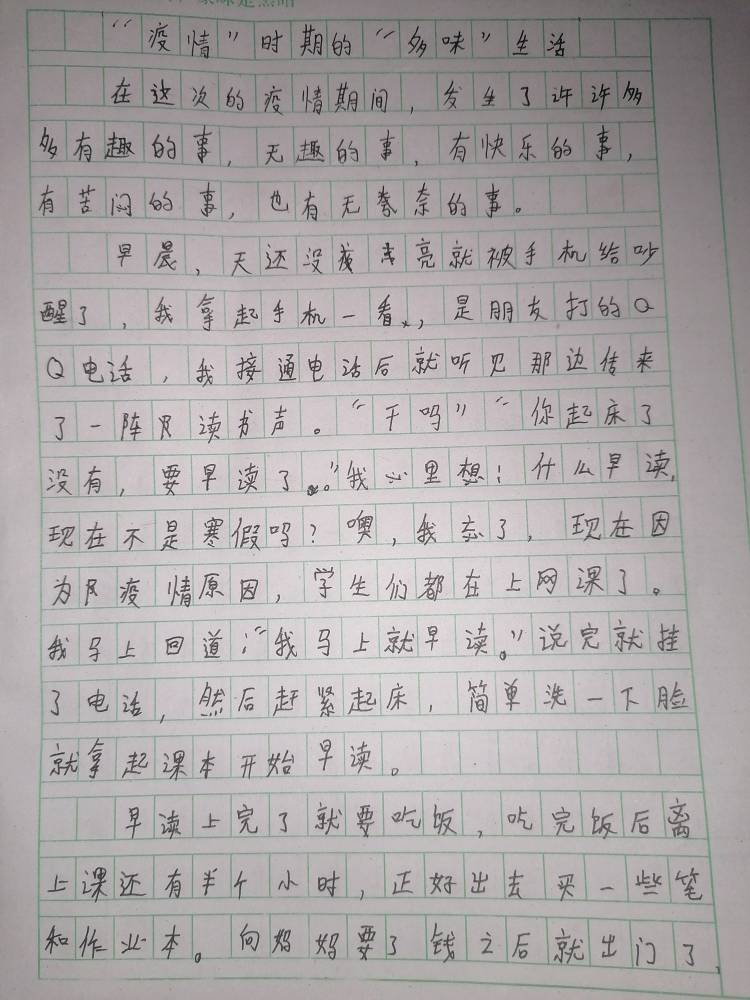 “疫情”时期的“多味”生活
在这次的疫情期间，发生了许许多
多有趣的事，无趣的事，有快乐的事，
有苦闷的事，也有无奈的事。
早晨，天还没亮就被手机给吵
醒了，我拿起手机一看，是朋友打的Q
Q电话，我接通电话后就听见那边传来
了一阵读书声。“干吗”“你起床了
没有，要早读了。”我心里想：什么早读，
现在不是寒假吗？噢，我忘了，现在因
为疫情原因，学生们都在上网课了。
我马上回道：“我马上就早读。”说完就挂
了电话，然后赶紧起床，简单洗一下脸
就拿起课本开始早读。
早读上完了就要吃饭，吃完饭后离
上课还有半个小时，正好出去买一些笔
和作业本。向妈妈要了钱之后就出门了，